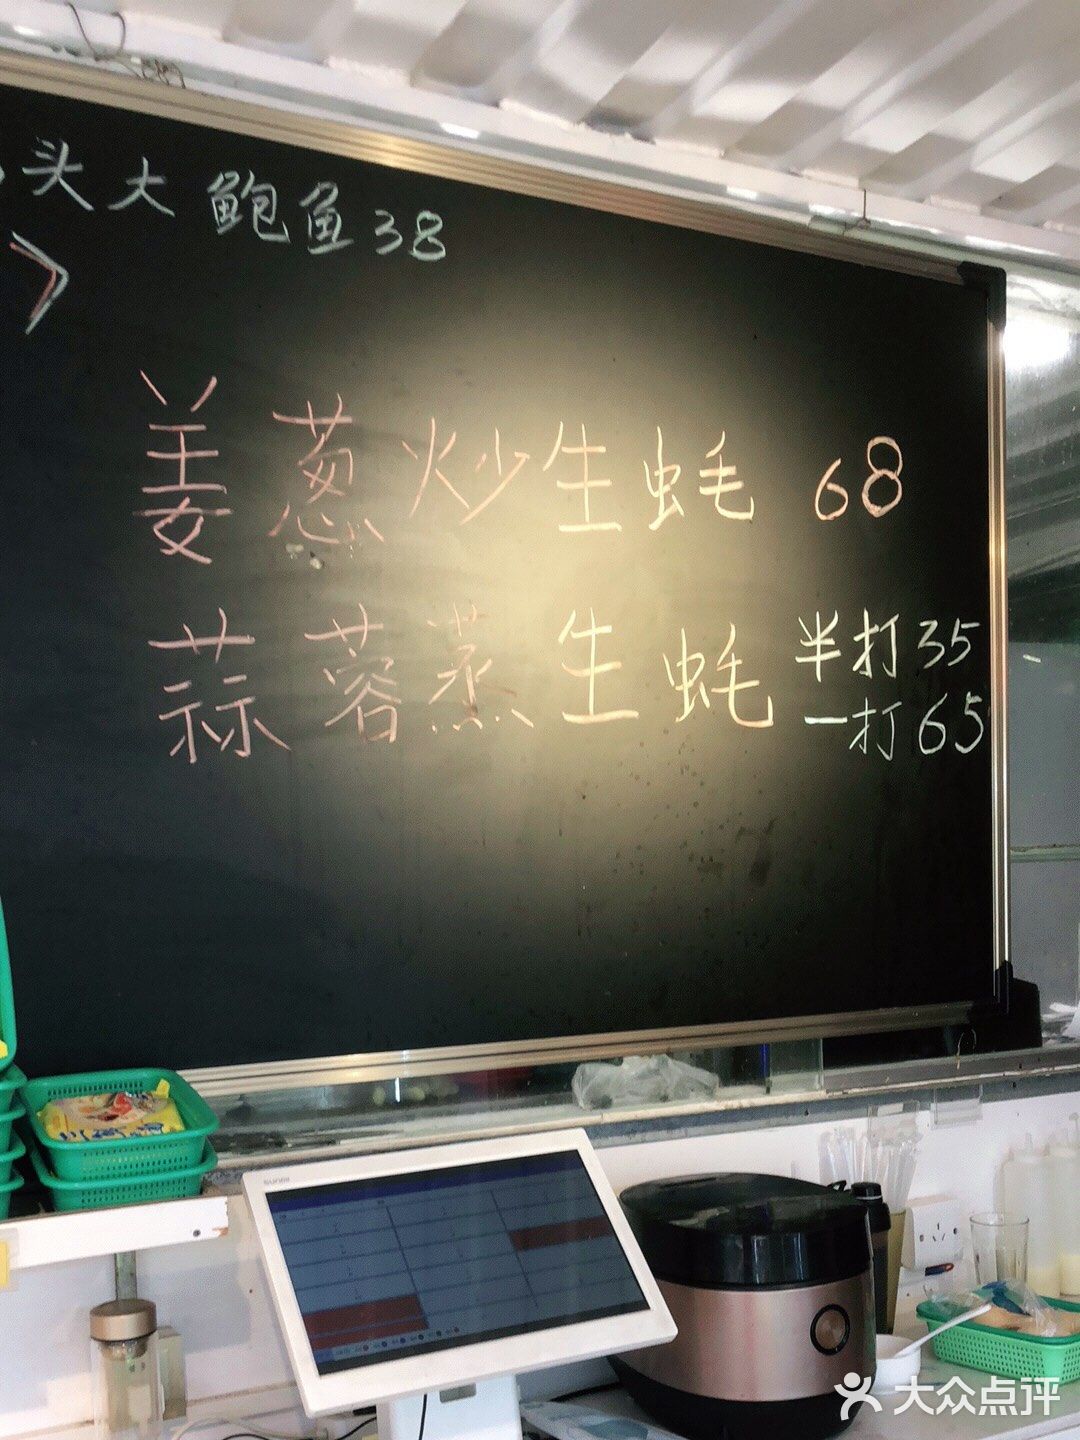 头大鲍鱼38
姜葱炒生蚝 68
蒜蓉蒸生蚝 半打35
一打65
SUNMI
大众点评